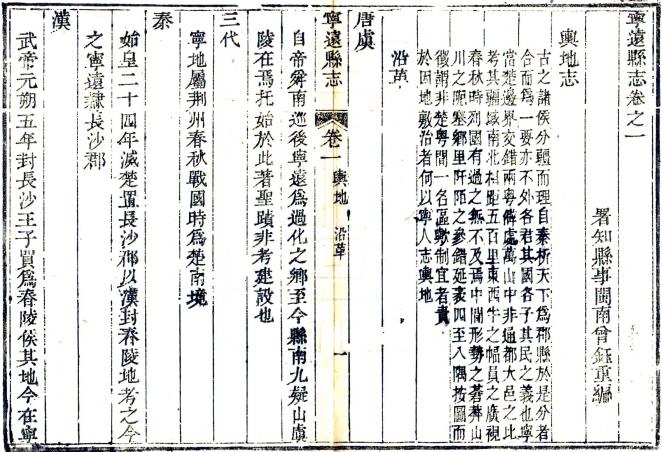 寧遠縣志卷之一
署知縣事閩南曾鈺重編
輿地志
古之諸侯分疆而理自秦析天下為郡縣於是分者
合而為一要亦不外各君其國各子其民之義也寧
當楚邊界交錯兩粵僻處萬山中非通都大邑之比
考其疆域南北相距五百里東西半之幅員之廣視
春秋時列國有過之無不及焉中間形勢之
川之阨塞鄉里阡陌之參錯延袤四至八隅按圖而
徵謂非楚粵間一名區歟制宜者責
於因地敷治者何以寧人志輿地
沿革
唐虞
寧遠縣志
卷一
輿地
沿革
一
自帝舜南巡後寧遠為過化之鄉至今縣南九疑山虞
陵在焉托始於此著聖蹟非考建設也
三代
寧地屬荆州春秋戰國時為楚南境
秦
始皇二十四年滅楚置長沙郡以漢封舂陵地考之今
之寧遠隸長沙郡
漢
武帝元朔五年封長沙王子買為舂陵侯其地今在寧